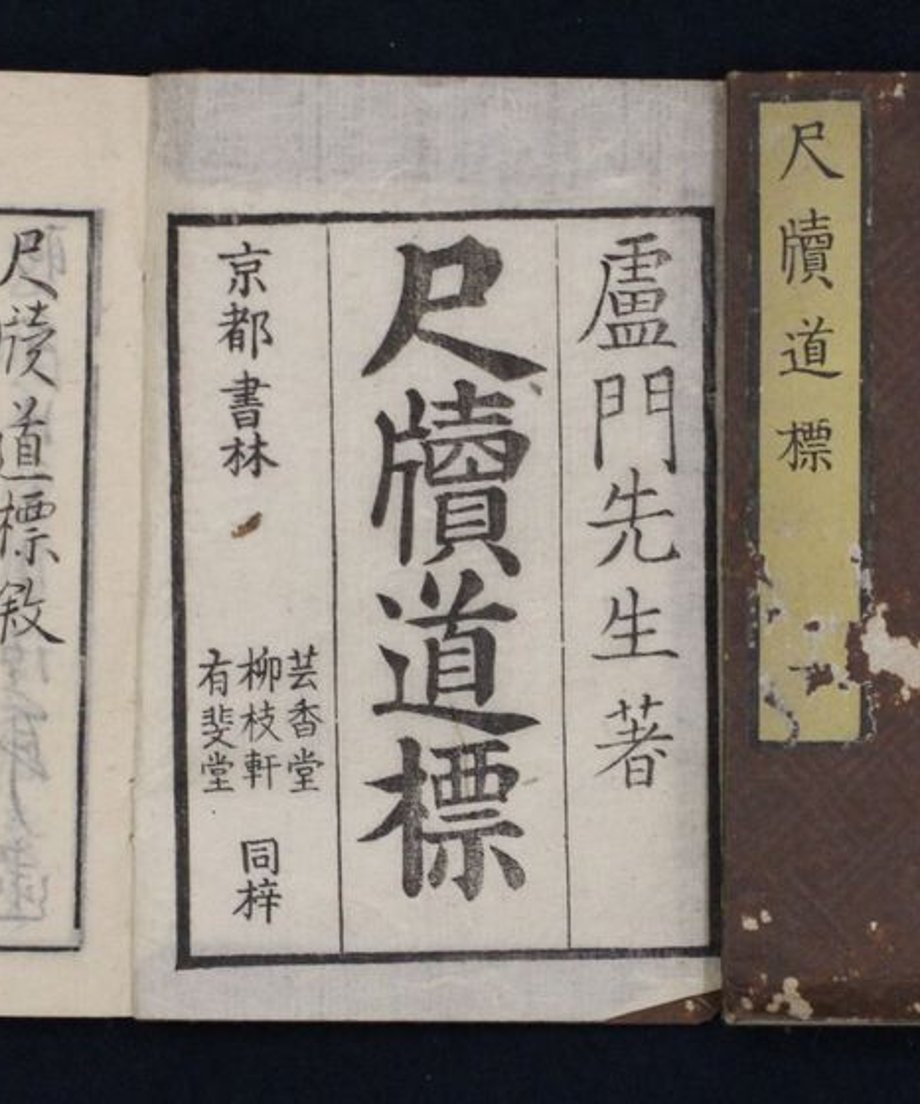 尺牘道標
盧門先生著
尺牘道標
京都書林
芸香堂
柳枝軒
有斐堂
同梓
尺牘道標敘